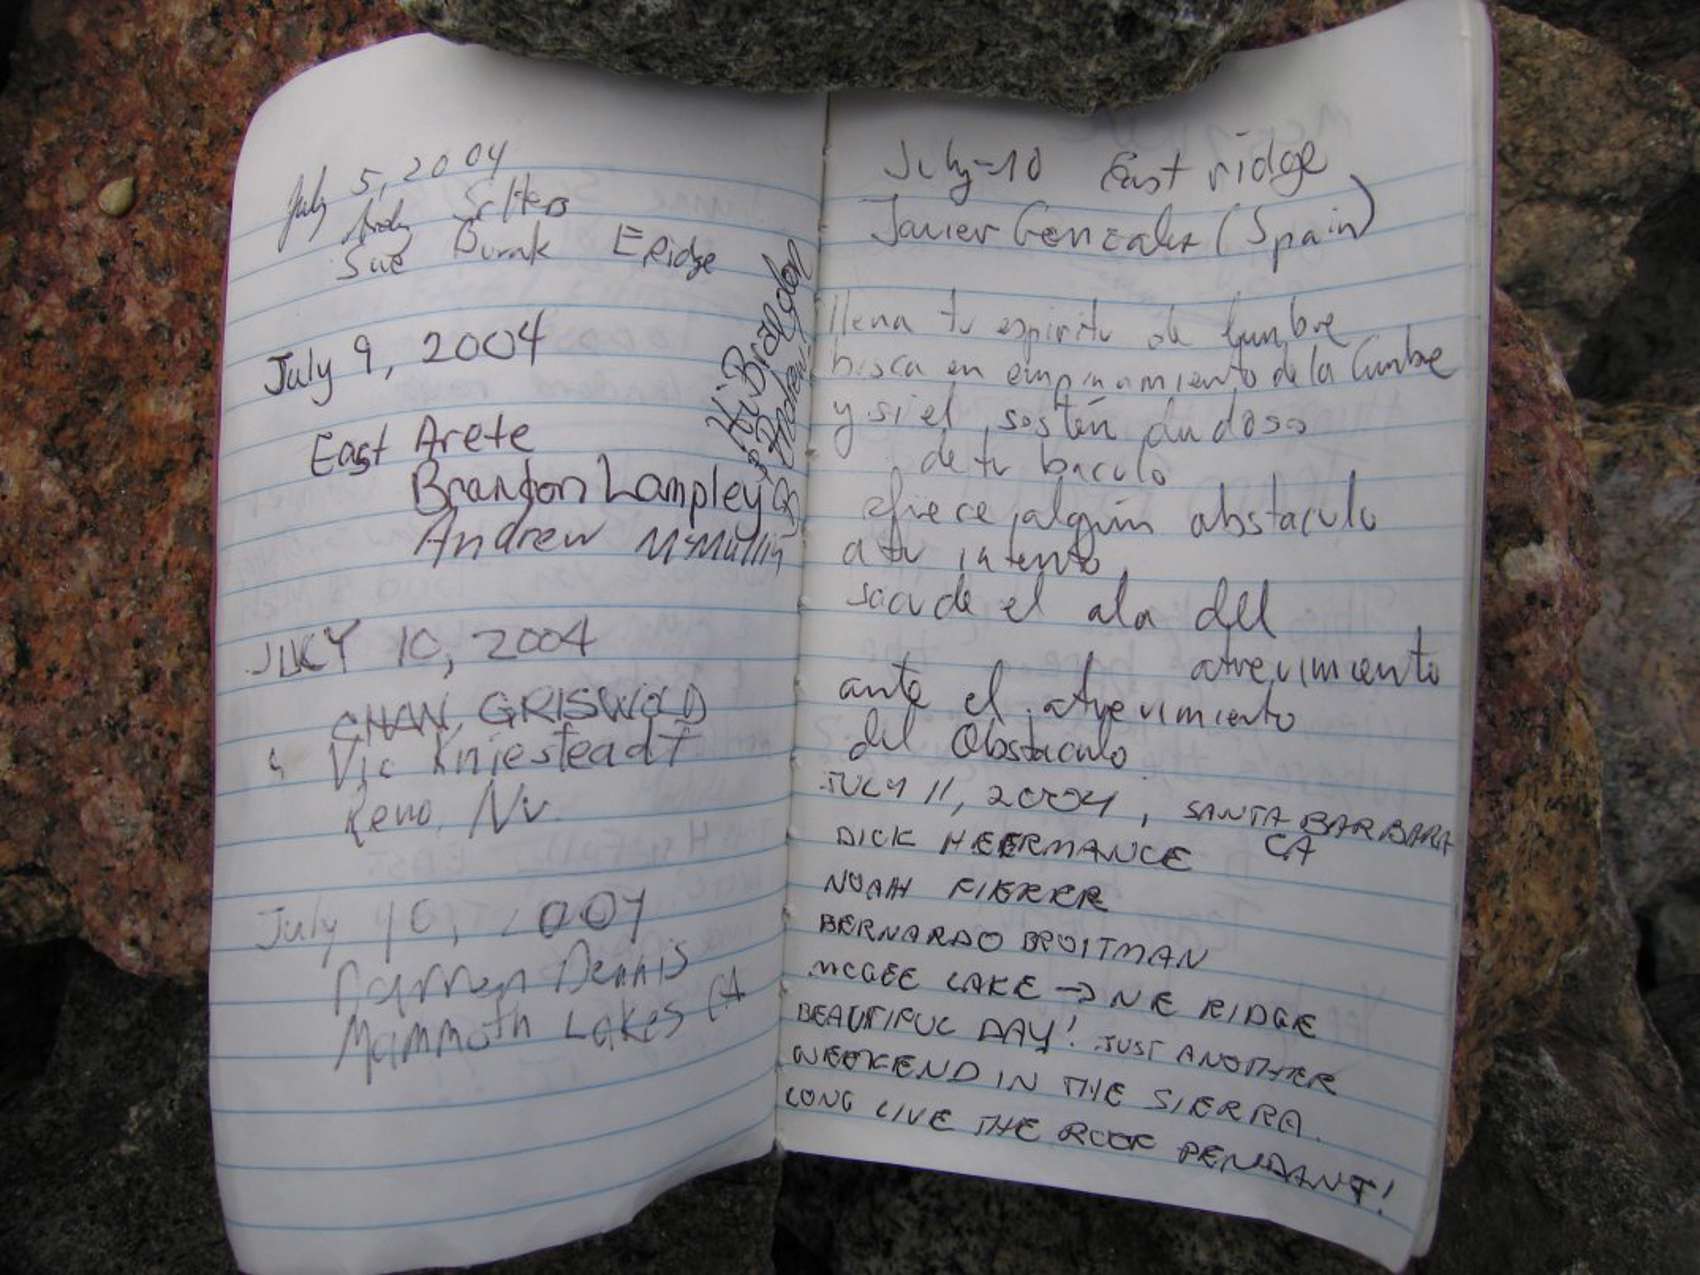 July 5, 2004
Andy Selters
Sue Burak E Ridge
July 9, 2004
East Arete
Brandon Lampley
Andrew McMullin
Hi Brandon
& Andrew!
JULY 10, 2004
CHAN GRISWOLD
& Vic Kniesteadt
Reno, Nv.
July 10, 2004
Darren Dennis
Mammoth Lakes CA
July-10 East ridge
Javier Gonzalez (Spain)
llena tu espiritu de lumbre
busca en empinamiento de la Cumbre
y si el sostén dudoso
de tu baculo
ofrece algún obstaculo
a tu intento
sacude el ala del
atrevimiento
ante el atrevimiento
del Obstaculo
JULY 11, 2004, SANTA BARBARA
CA
DICK HEERMANCE
NOAH FIERER
BERNARDO BROITMAN
MCGEE LAKE → NE RIDGE
BEAUTIFUL DAY! JUST ANOTHER
WEEKEND IN THE SIERRA.
LONG LIVE THE ROOF PENDANT!